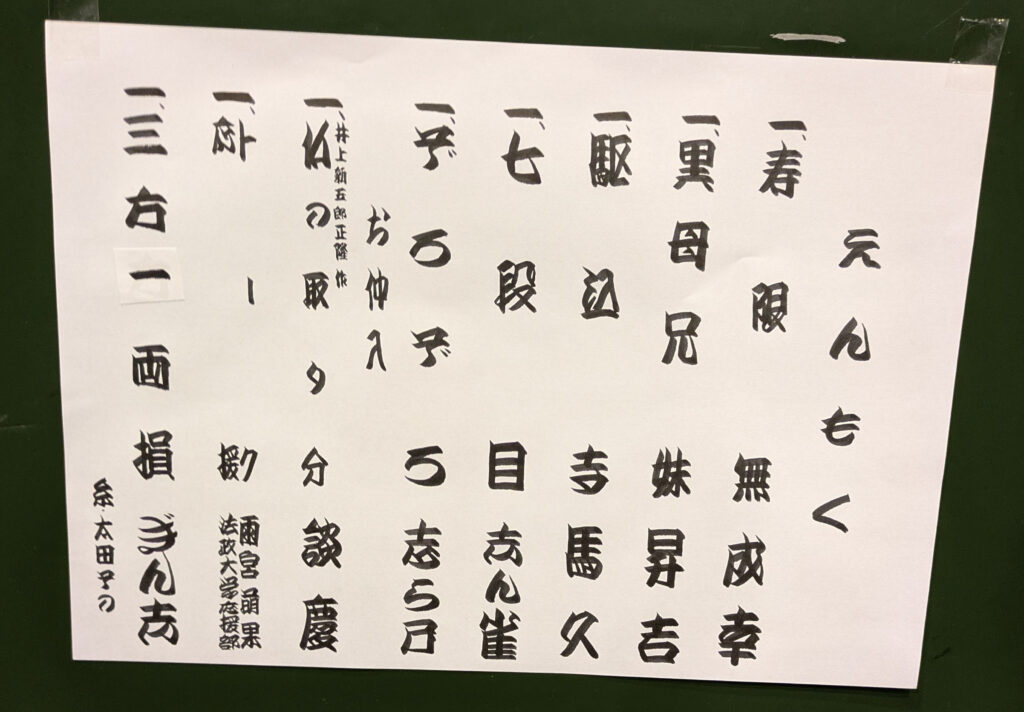 えんもく
一、寿限無 成幸
一、黒母兄妹 昇吉
一、駆込寺 馬久
一、七段目 志ん雀
一、ぞろぞろ 志ら乃
お仲入
井上新五郎正隆 作
一、仏の取り分 談慶
一、トーク 雨宮萌果
応援 法政大学応援部
一、三方一両損 ぎん志
糸・太田その